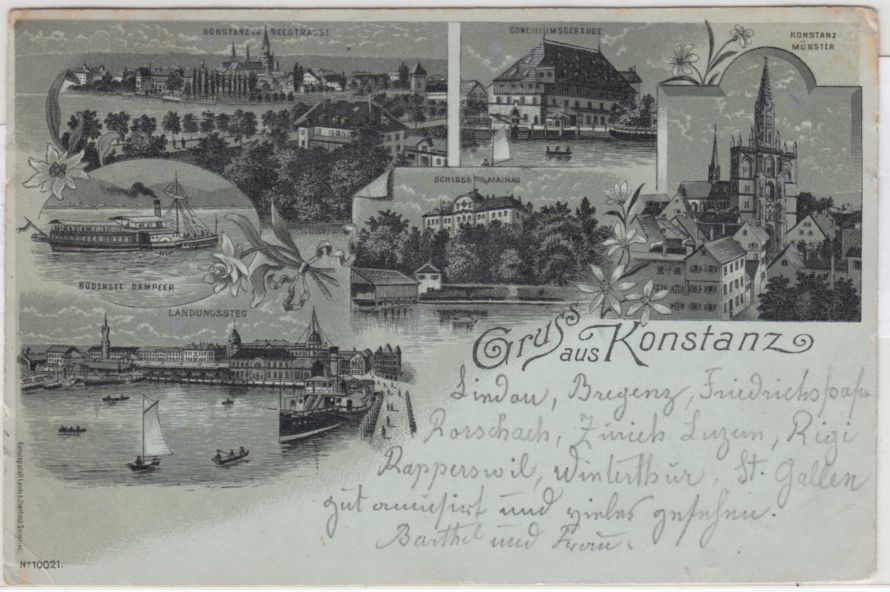 KONSTANZ v.d. SEESTRASSE
CONCILIUMSGEBÄUDE
KONSTANZ
MÜNSTER
SCHLOSS MAINAU
BODENSEE DAMPFER
LANDUNGSSTEG
Gruss
aus Konstanz
Lindau, Bregenz, Friedrichshafen
Rorschach, Zürich Luzern, Rigi
Rapperswil, Winterthur, St. Gallen
gut amüsirt und vieles gesehen.
Barthel und Frau.
No 10021.